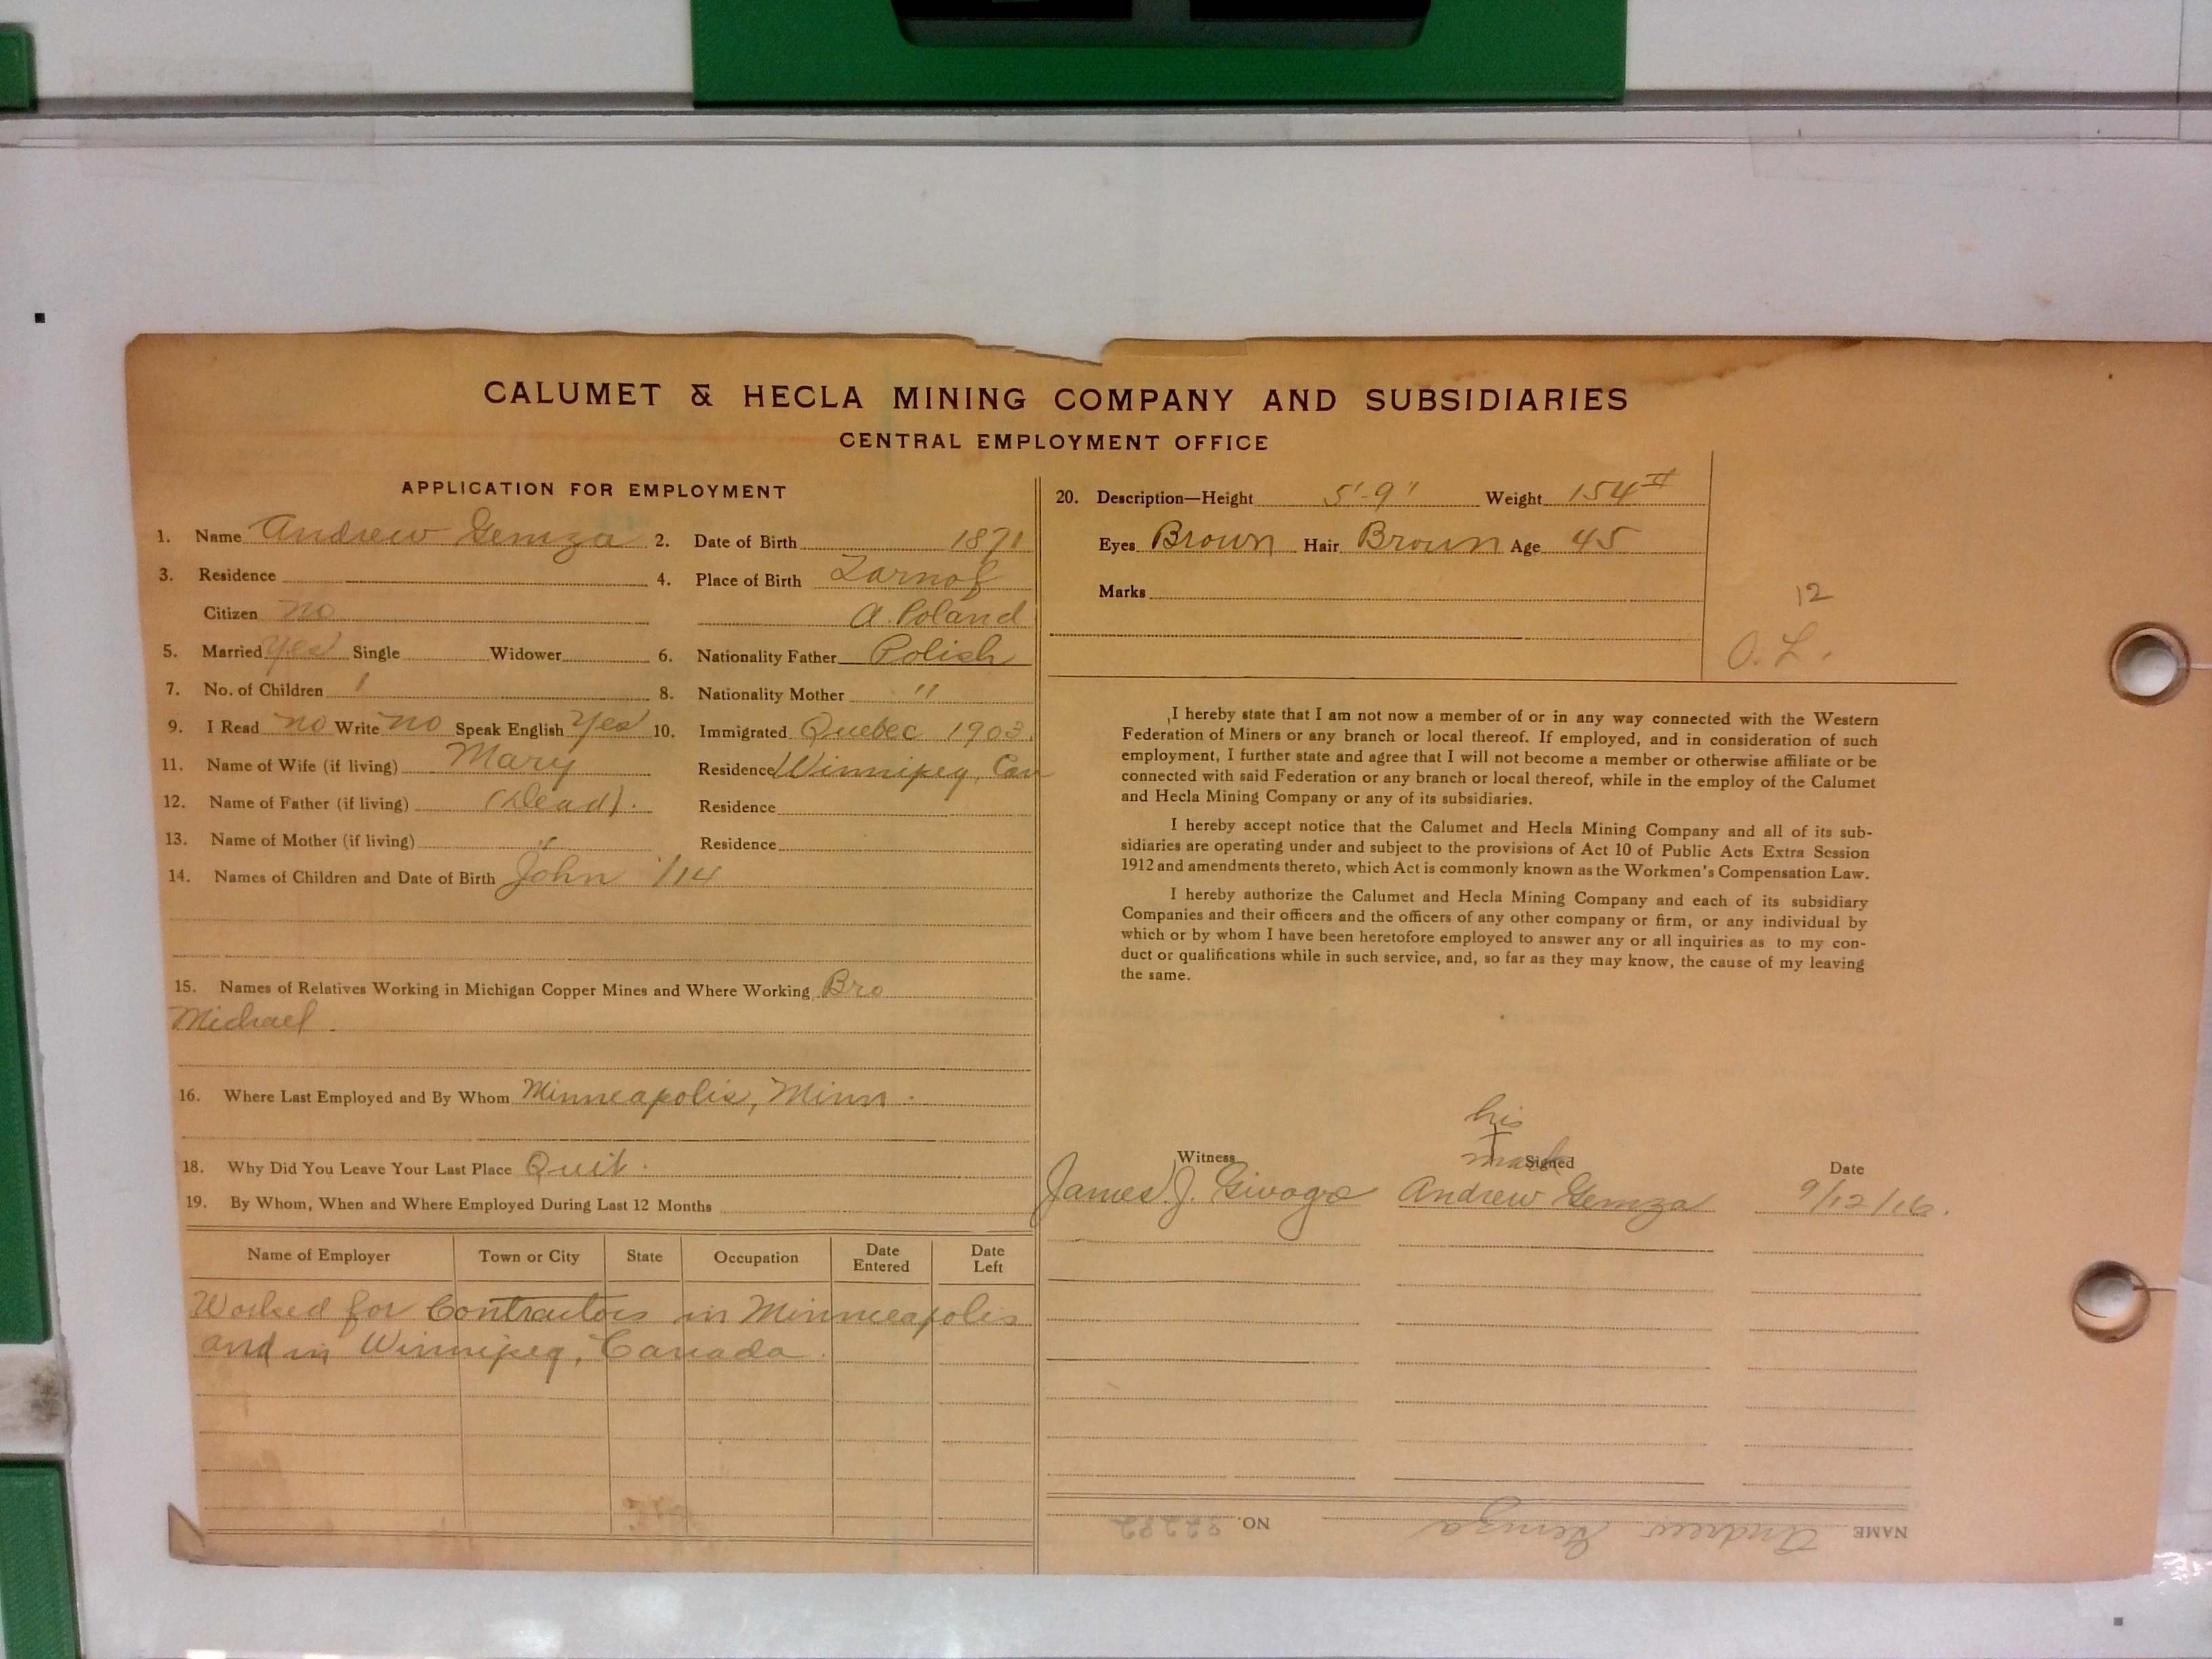 CALUMET & HECLA MINING COMPANY AND SUBSIDIARIES
CENTRAL EMPLOYMENT OFFICE
APPLICATION FOR EMPLOYMENT
1. Name Andrew Gemza 2. Date of Birth 1871
3. Residence 4. Place of Birth Zarnof
Citizen no A. Poland
5. Married yes Single Widower 6. Nationality Father Polish
7. No. of Children 1 8. Nationality Mother "
9. I Read no Write no Speak English yes 10. Immigrated Quebec 1903.
11. Name of Wife (if living) Mary Residence Winnipeg, Can
12. Name of Father (if living) (Dead). Residence
13. Name of Mother (if living) " Residence
14. Names of Children and Date of Birth John 1/14
15. Names of Relatives Working in Michigan Copper Mines and Where Working Bro
Michael.
16. Where Last Employed and By Whom Minneapolis, Minn.
18. Why Did You Leave Your Last Place Quit.
19. By Whom, When and Where Employed During Last 12 Months
Name of Employer Town or City State Occupation Date Entered Date Left
Worked for Contractors in Minneapolis
and in Winnipeg, Canada.
20. Description—Height 5'-9' Weight 154
Eyes Brown Hair Brown Age 45
Marks
12
O. L.
I hereby state that I am not now a member of or in any way connected with the Western
Federation of Miners or any branch or local thereof. If employed, and in consideration of such
employment, I further state and agree that I will not become a member or otherwise affiliate or be
connected with said Federation or any branch or local thereof, while in the employ of the Calumet
and Hecla Mining Company or any of its subsidiaries.
I hereby accept notice that the Calumet and Hecla Mining Company and all of its sub-
sidiaries are operating under and subject to the provisions of Act 10 of Public Acts Extra Session
1912 and amendments thereto, which Act is commonly known as the Workmen's Compensation Law.
I hereby authorize the Calumet and Hecla Mining Company and each of its subsidiary
Companies and their officers and the officers of any other company or firm, or any individual by
which or by whom I have been heretofore employed to answer any or all inquiries as to my con-
duct or qualifications while in such service, and, so far as they may know, the cause of my leaving
the same.
his
mark
Witness Signed Date
James J. Givogre Andrew Gemza 9/12/16.
NAME Andrew Gemza NO.